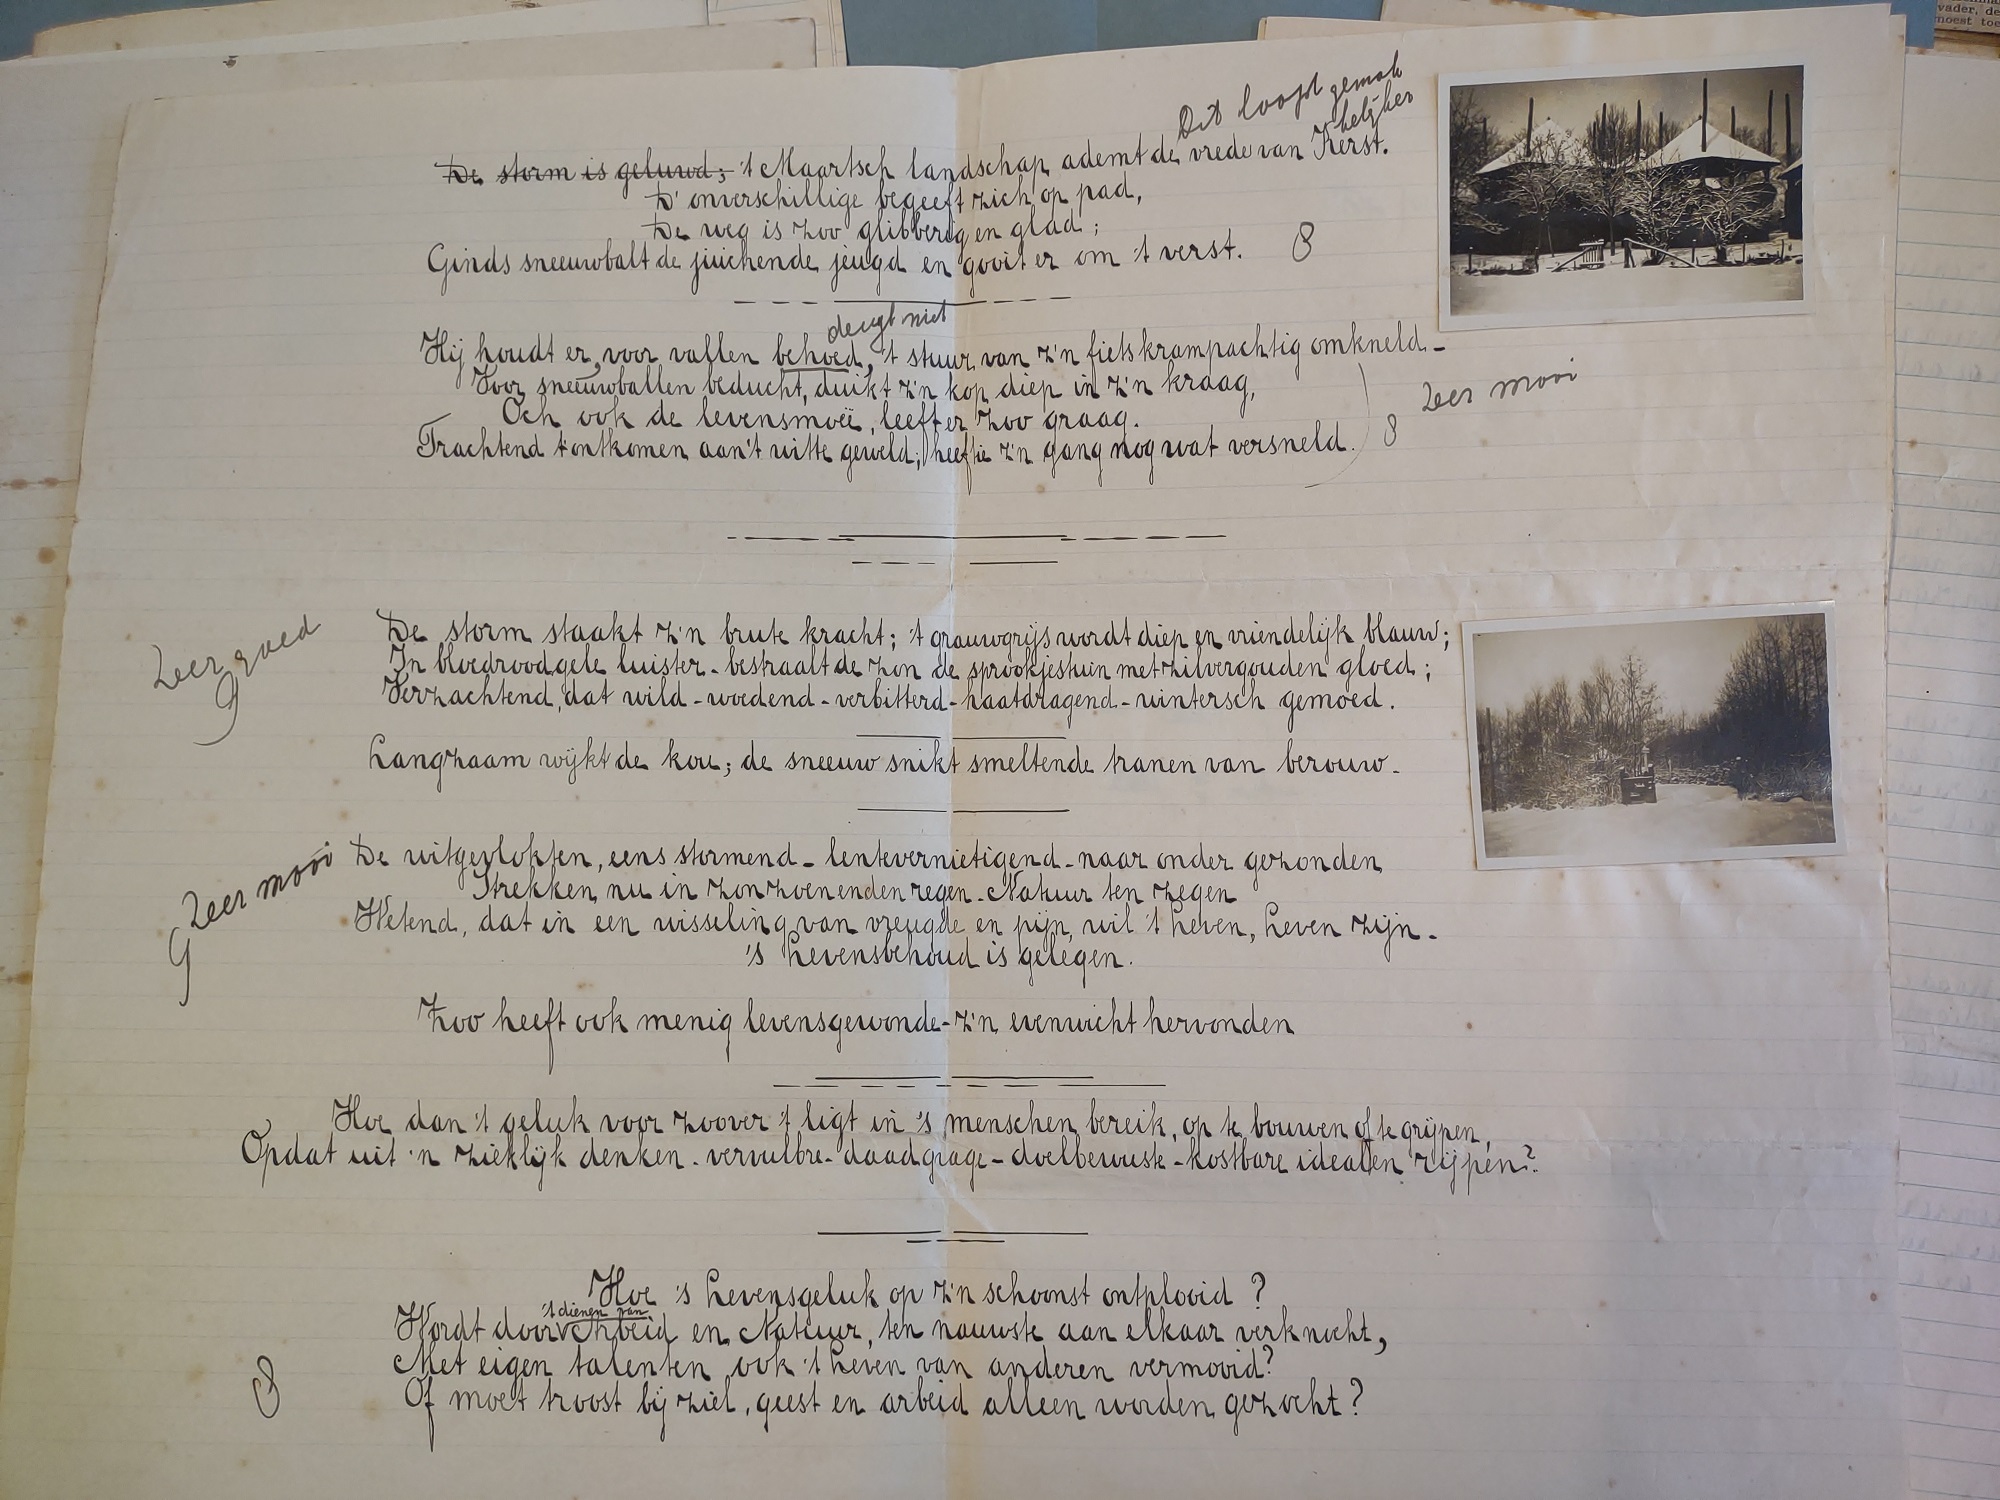 Dit loopt gemak
kelijker
De storm is geluwd; 't Maartsch landschap ademt de vrede van Kerst.
D' onverschillige begeeft zich op pad,
De weg is zoo glibberig en glad;
Ginds sneeuwbalt de juichende jeugd en gooit er om 't verst. 8
deugt niet
Hij houdt er, voor vallen behoed, 't stuur van z'n fiets krampachtig omkneld -
Voor sneeuwballen beducht, duikt z'n kop diep in z'n kraag,
Och ook de levensmoeë, leeft er zoo graag.
Trachtend t'ontkomen aan 't witte geweld; heeft ie z'n gang nog wat versneld.
8 Zeer mooi
Zeer goed
9
De storm staakt z'n brute kracht; 't grauwgrijs wordt diep en vriendelijk blauw;
In bloedroodgele luister - bestraalt de zon de sprookjestuin met zilvergouden gloed;
Verzachtend, dat wild - woedend - verbitterd - haatdragend - wintersch gemoed.
Langzaam wijkt de kou; de sneeuw snikt smeltende tranen van berouw.
Zeer mooi
9
De uitgevlokten, eens stormend - lentevernietigend - naar onder gezonden
Strekken, nu in zonzoenenden regen - Natuur ten zegen
Wetend, dat in een wisseling van vreugde en pijn, wil 't Leven, Leven zijn -
's Levensbehoud is gelegen.
Zoo heeft ook menig levensgewonde - z'n evenwicht hervonden
Hoe dan 't geluk voor zoover 't ligt in 's menschen bereik, op te bouwen of te grijpen,
Opdat uit 'n ziekelijk denken - vervulbre - daadgrage - doelbewuste - kostbare idealen rijpen?
Hoe 's Levensgeluk op z'n schoonst ontplooid?
't dienen van
Wordt door Arbeid en Natuur, ten nauwste aan elkaar verknocht,
Met eigen talenten ook 't Leven van anderen vermooid?
8
Of moet troost bij ziel, geest en arbeid alleen worden gezocht?
vader, de
moest toe